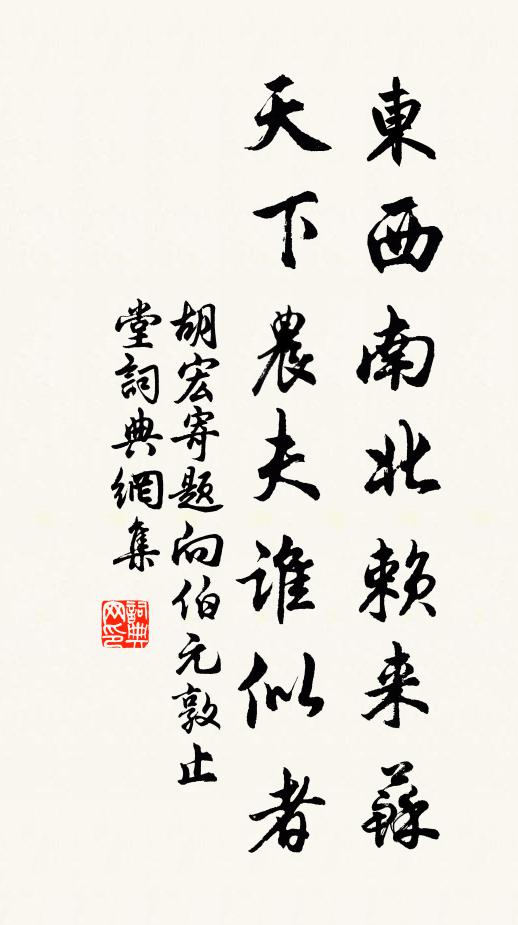 東西南北賴来蘇
天下農夫誰似者
胡宏寄題向伯元敦止
堂詞典網集
詞典网印